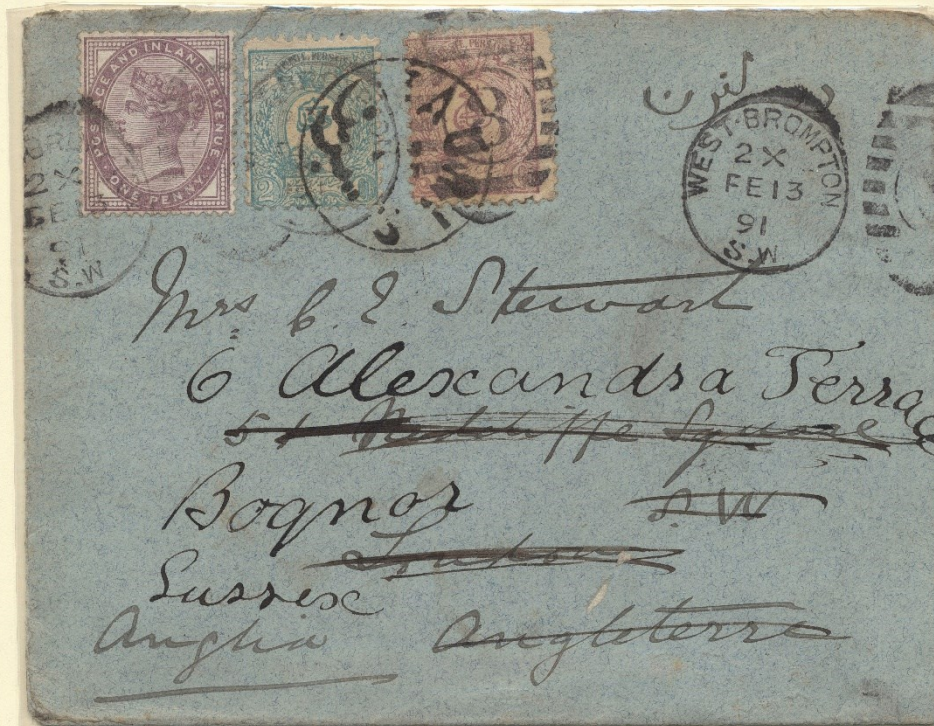 POSTAGE AND INLAND REVENUE
ONE PENNY
2
8
لندن
WEST-BROMPTON
2 X
FE 13
91
S.W
Mrs C. E. Stewart
6 Alexandra Terrace
51 Redcliffe Square
Bognor S.W
London
Sussex
Anglia Angleterre